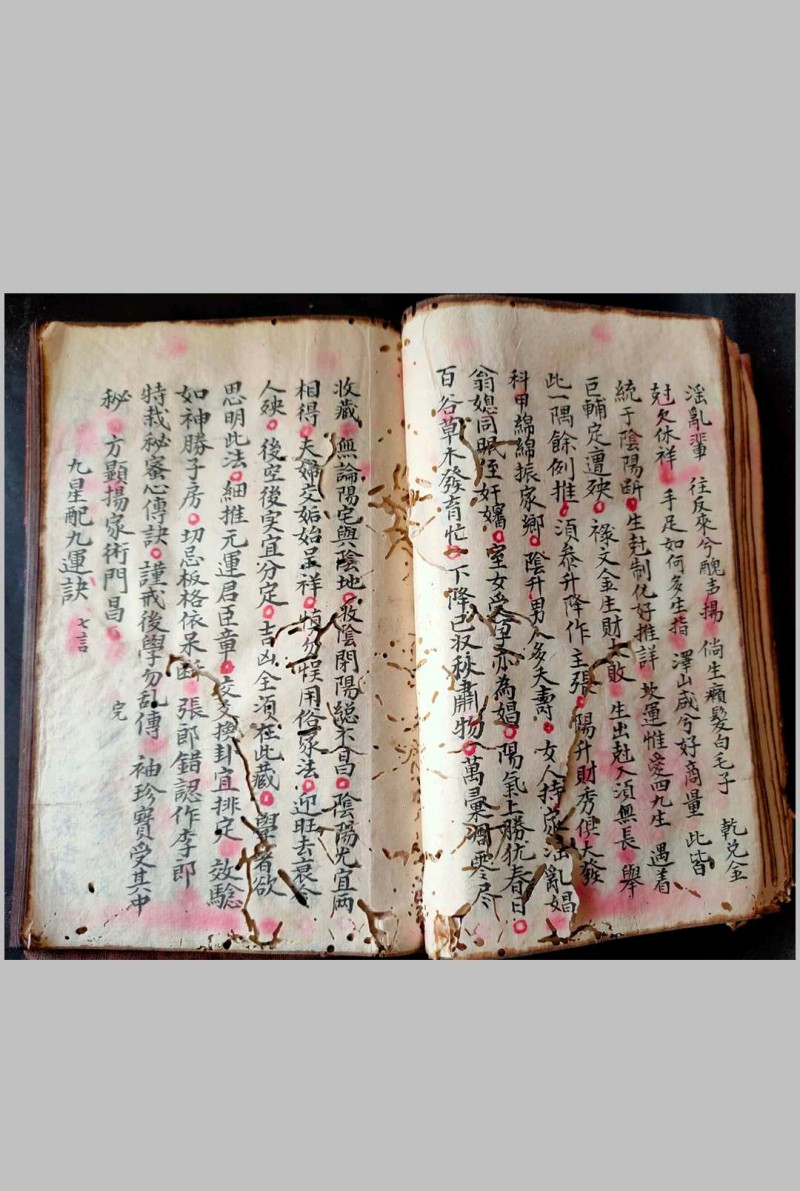 淫亂輩 往反來兮醜声揚 倘生癩髮白毛子 乾兑金
尅欠休祥 手足如何多生指 澤山咸兮好商量 此皆
統于陰陽断 生尅制化好推詳 坎運惟愛四九生 遇着
巨輔定遭殃 禄文金生財大敗 生出尅入須無長 舉
此一隅餘例推 須叅升降作主張 陽升財秀俱大發
科甲綿綿振家鄉 陰升男人多夭壽 女人持家淫亂娼
翁媳同眠姪奸孀 室女受孕亦為娼 陽氣上勝犹春日
百谷草木發育忙 下降已収秋肅物 萬彙凋零尽
收藏 無論陽宅與陰地 收陰閉陽縂不昌 陰陽先宜両
相得 夫婦交姤始呈祥 慎勿悮用俗家法 迎旺去衰令
人殃 後空後実宜分定 吉凶全須在此藏 學者欲
思明此法 細推元運君臣章 交爻換卦宜排定 效驗
如神勝子房 切忌板格依呆断 張郎錯認作李郎
特栽秘蜜心傳訣 謹戒後學勿乱傳 袖珍寳受其中
秘 方顯揚家術門昌
九星配九運訣 七言 完